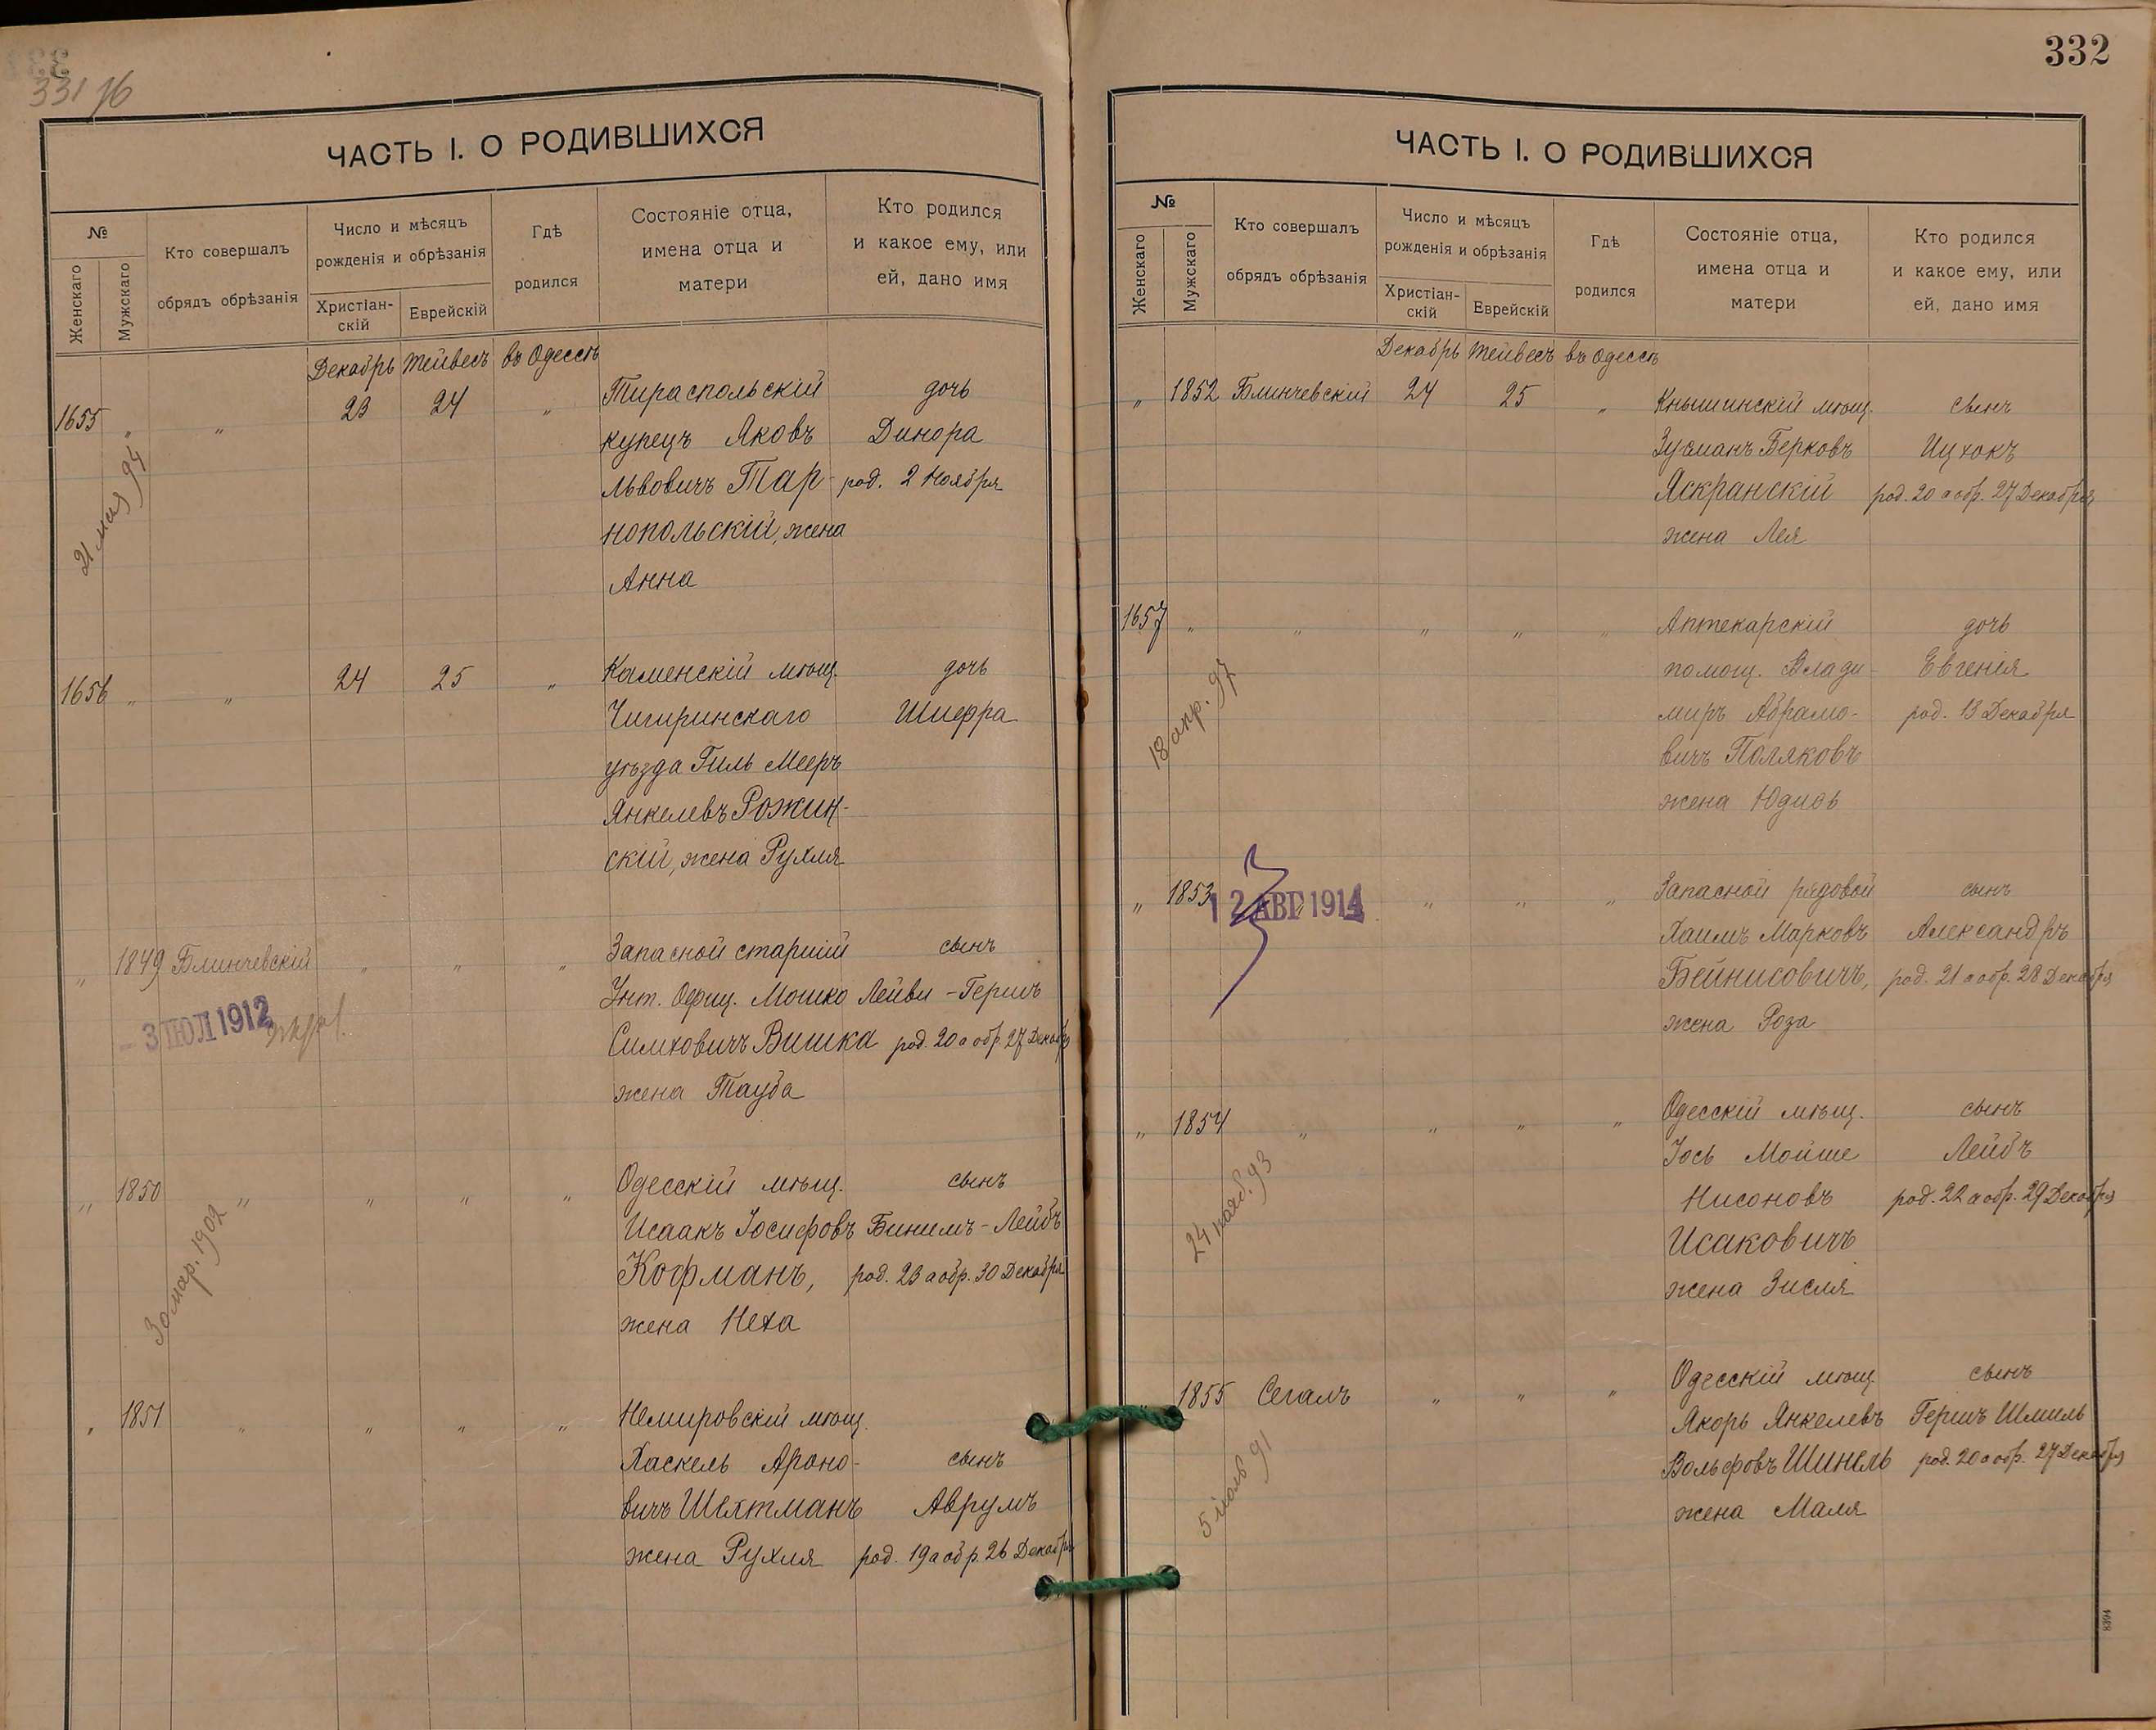 332
ЧАСТЬ I. О РОДИВШИХСЯ
№
Женскаго
Мужскаго
Кто совершалъ
обрядъ обрѣзанія
Число и мѣсяцъ
рожденія и обрѣзанія
Христіан-
скій
Еврейскій
Гдѣ
родился
Состояніе отца,
имена отца и
матери
Кто родился
и какое ему, или
ей, дано имя
Декабрь Тейвесъ въ Одессѣ
1655 „ „ 23 24 „ Тираспольскій дочь
купецъ Яковъ Динора
Львовичъ Тар- род. 2 Ноября
нопольскій, жена
Анна
21 мая 94
1656 „ „ 24 25 „ Каменскій мѣщ. дочь
Чигиринскаго Шифра
уѣзда Гиль Мееръ
Янкелевъ Рожин-
скій, жена Рухля
„ 1849 Блинчевскій „ „ „ Запасной старшій сынъ
Унт. Офиц. Мошко Лейви-Гершъ
Симховичъ Вишка род. 20 а обр. 27 Декабр
жена Тауба
- 3 ІЮЛ 1912
„ 1850 „ „ „ „ Одесскій мѣщ. сынъ
Исаакъ Іосифовъ Бинимъ-Лейбъ
Кофманъ, род. 23 а обр. 30 Декабря
жена Неха
30 мар. 1902
„ 1851 „ „ „ „ Немировскій мѣщ.
Хаскель Ароно- сынъ
вичъ Шехтманъ Аврумъ
жена Рухля род. 19 а обр. 26 Декабря
ЧАСТЬ I. О РОДИВШИХСЯ
№
Женскаго
Мужскаго
Кто совершалъ
обрядъ обрѣзанія
Число и мѣсяцъ
рожденія и обрѣзанія
Христіан-
скій
Еврейскій
Гдѣ
родился
Состояніе отца,
имена отца и
матери
Кто родился
и какое ему, или
ей, дано имя
Декабрь Тейвесъ въ Одессѣ
„ 1852 Блинчевскій 24 25 „ Кнышинскій мѣщ. сынъ
Зусманъ Берковъ Ицхокъ
Яскранскій род. 20 а обр. 27 Декабря
жена Лея
1657 „ „ „ „ „ Аптекарскій дочь
помощ. Влади- Евгенія
миръ Абрамо- род. 13 Декабря
вичъ Поляковъ
жена Юдиѳь
18 апр. 97
„ 1853 „ „ „ „ Запасной рядовой сынъ
Хаимъ Марковъ Александръ
Бейнисовичъ, род. 21 а обр. 28 Декабря
жена Роза
12 АВГ 1914
„ 1854 „ „ „ „ Одесскій мѣщ. сынъ
Іось Мойше Лейбъ
Нисоновъ род. 22 а обр. 29 Декабря
Исаковичъ
жена Зисля
24 нояб. 93
1855 Сегалъ „ „ „ Одесскій мѣщ. сынъ
Якорь Янкелевъ Гершъ Шмиль
Вольфовъ Шинель род. 20 а обр. 27 Декабря
жена Маля
8394